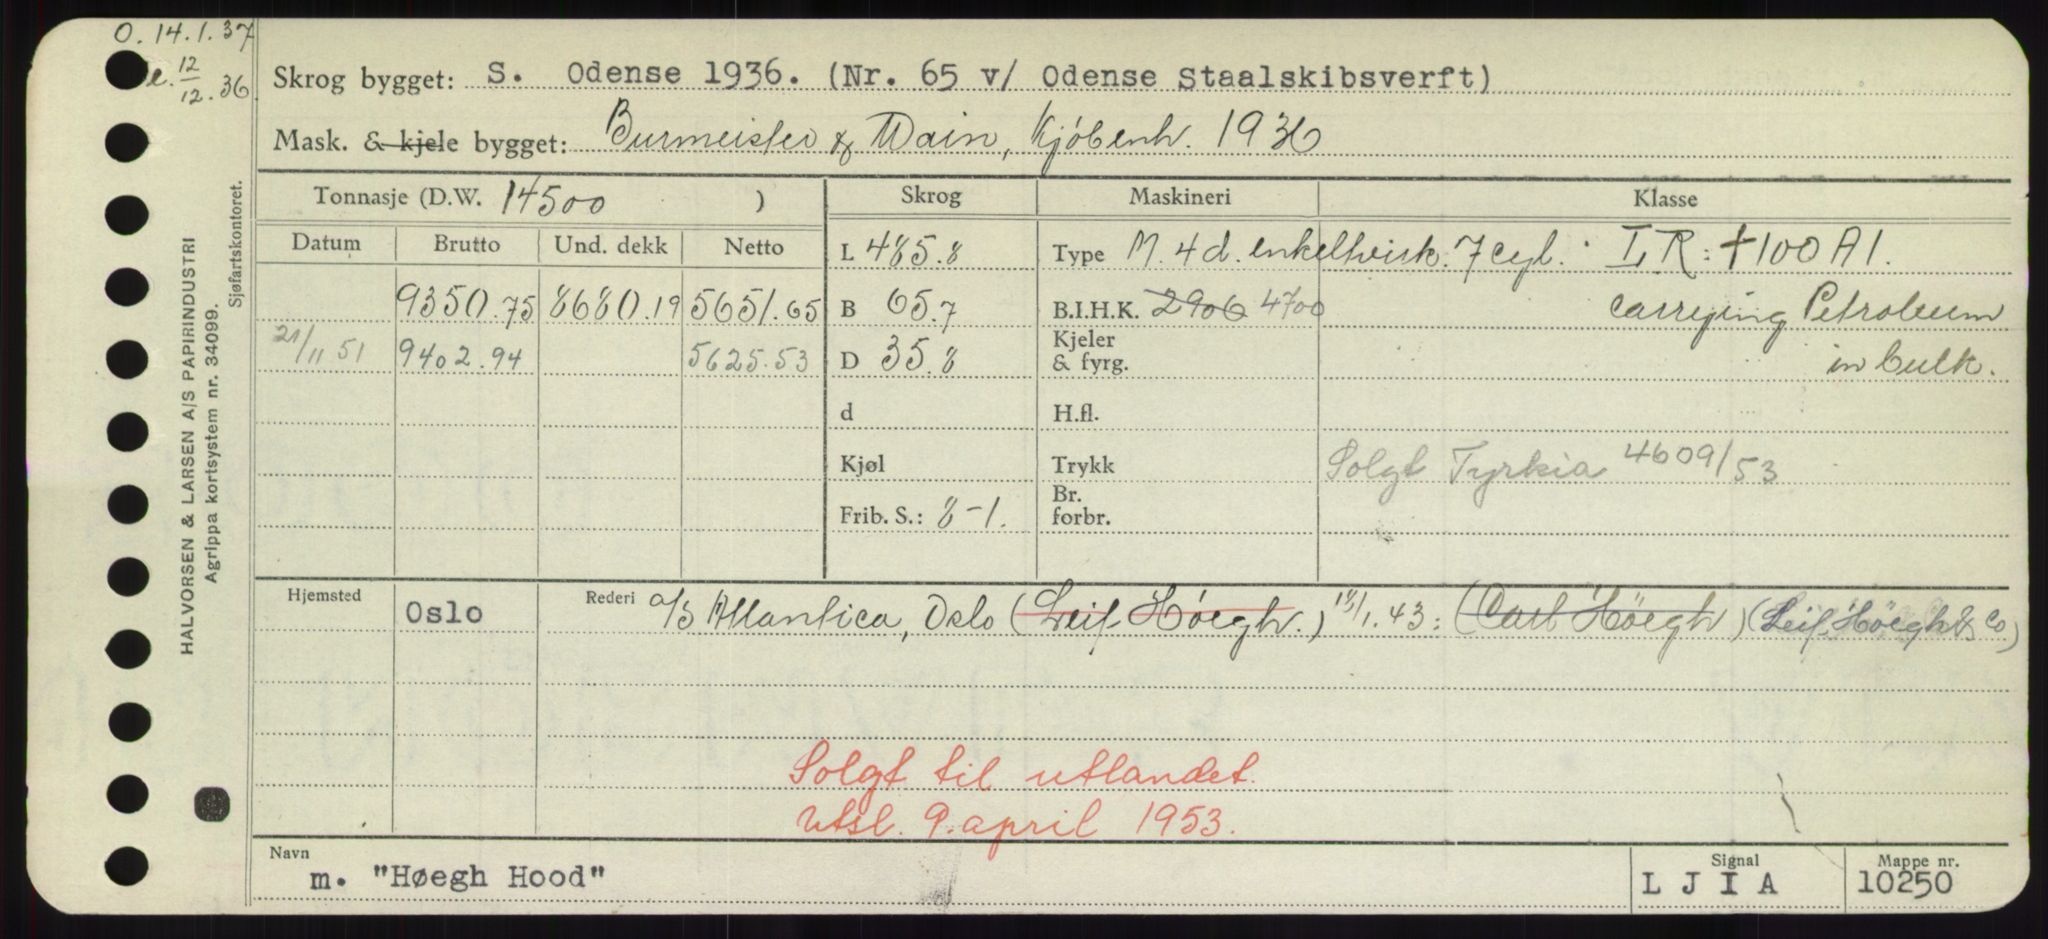 O. 14.1.37
e. 12/12.36
Skrog bygget: S. Odense 1936. (Nr. 65 v/ Odense Staalskibsverft)
Mask. & kjele bygget: Burmeister & Wain, Kjöbenh. 1936
Tonnasje (D.W. 14500 )
Skrog
Maskineri
Klasse
Datum Brutto Und. dekk Netto
L 485.8
Type M. 4 d. enkeltvirk. 7 cyl.
L R: +100 A1.
9350.75 8680.19 5651.65
B 65.7
B.I.H.K. 2906 4700
carrying Petroleum
21/11 51 9402.94 5625.53
D 35.8
Kjeler
& fyrg.
in bulk.
d
H.fl.
Kjøl
Trykk
Solgt Tyrkia 4609/53
Frib. S.: 8-1.
Br.
forbr.
Hjemsted Oslo
Rederi a/s Atlantica, Oslo (Leif Høegh.) 18/1.43: (Carl Höegh) (Leif Höegh & Co)
Solgt til utlandet.
Utsl. 9. april 1953.
Navn
m. "Høegh Hood"
Signal
L J I A
Mappe nr.
10250
HALVORSEN & LARSEN A/S PAPIRINDUSTRI
Agrippa kortsystem nr. 34099.
Sjøfartskontoret.